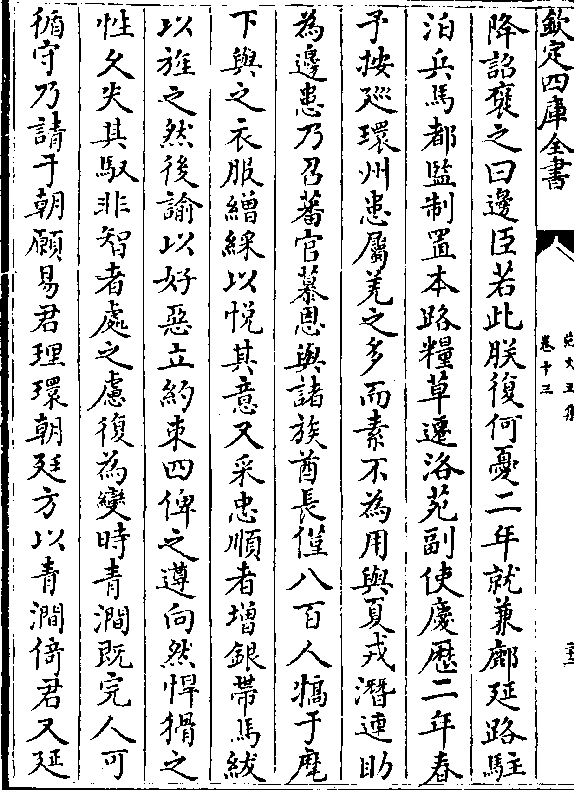 欽定四庫全書
卷十三
降詔褒之曰邊臣若此朕復何憂二年就兼鄜延路駐
泊兵馬都監制置本路糧草遷洛苑副使慶歷二年春
予按廵環州患屬羌之多而素不為用與夏戎潛連助
為邊患乃召蕃官慕恩與諸族酋長僅八百人犒于麾
下與之衣服繒綵以悦其意又采忠順者增銀帶馬紱
以旌之然後諭以好惡立約束四俾之遵向然悍猾之
性久失其馭非智者處之慮復為變時青澗既完人可
循守乃請于朝願易君理環朝廷方以青澗倚君又延